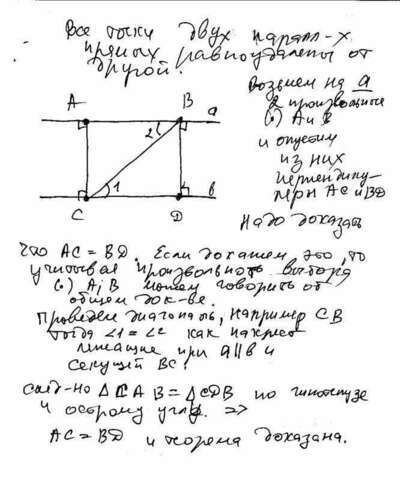 Все точки двух паралл-х
прямых равноудалены от
другой.
Возьмем на a
2 произвольные
(·) A и B
и опустим
из них
перпендику-
ляры AC и BD
Надо доказать
A
B
a
2
1
C
D
b
что AC = BD. Если докажем это, то
учитывая произвольность выбора
(·) A; B можем говорить об
общем док-ве.
Проведем диагональ, например CB
тогда ∠1 = ∠2 как накрест
лежащие при a||b и
секущей BC.
След-но Δ CAB = ΔCDB по гипотенузе
и острому углу. =>
AC = BD и теорема доказана.